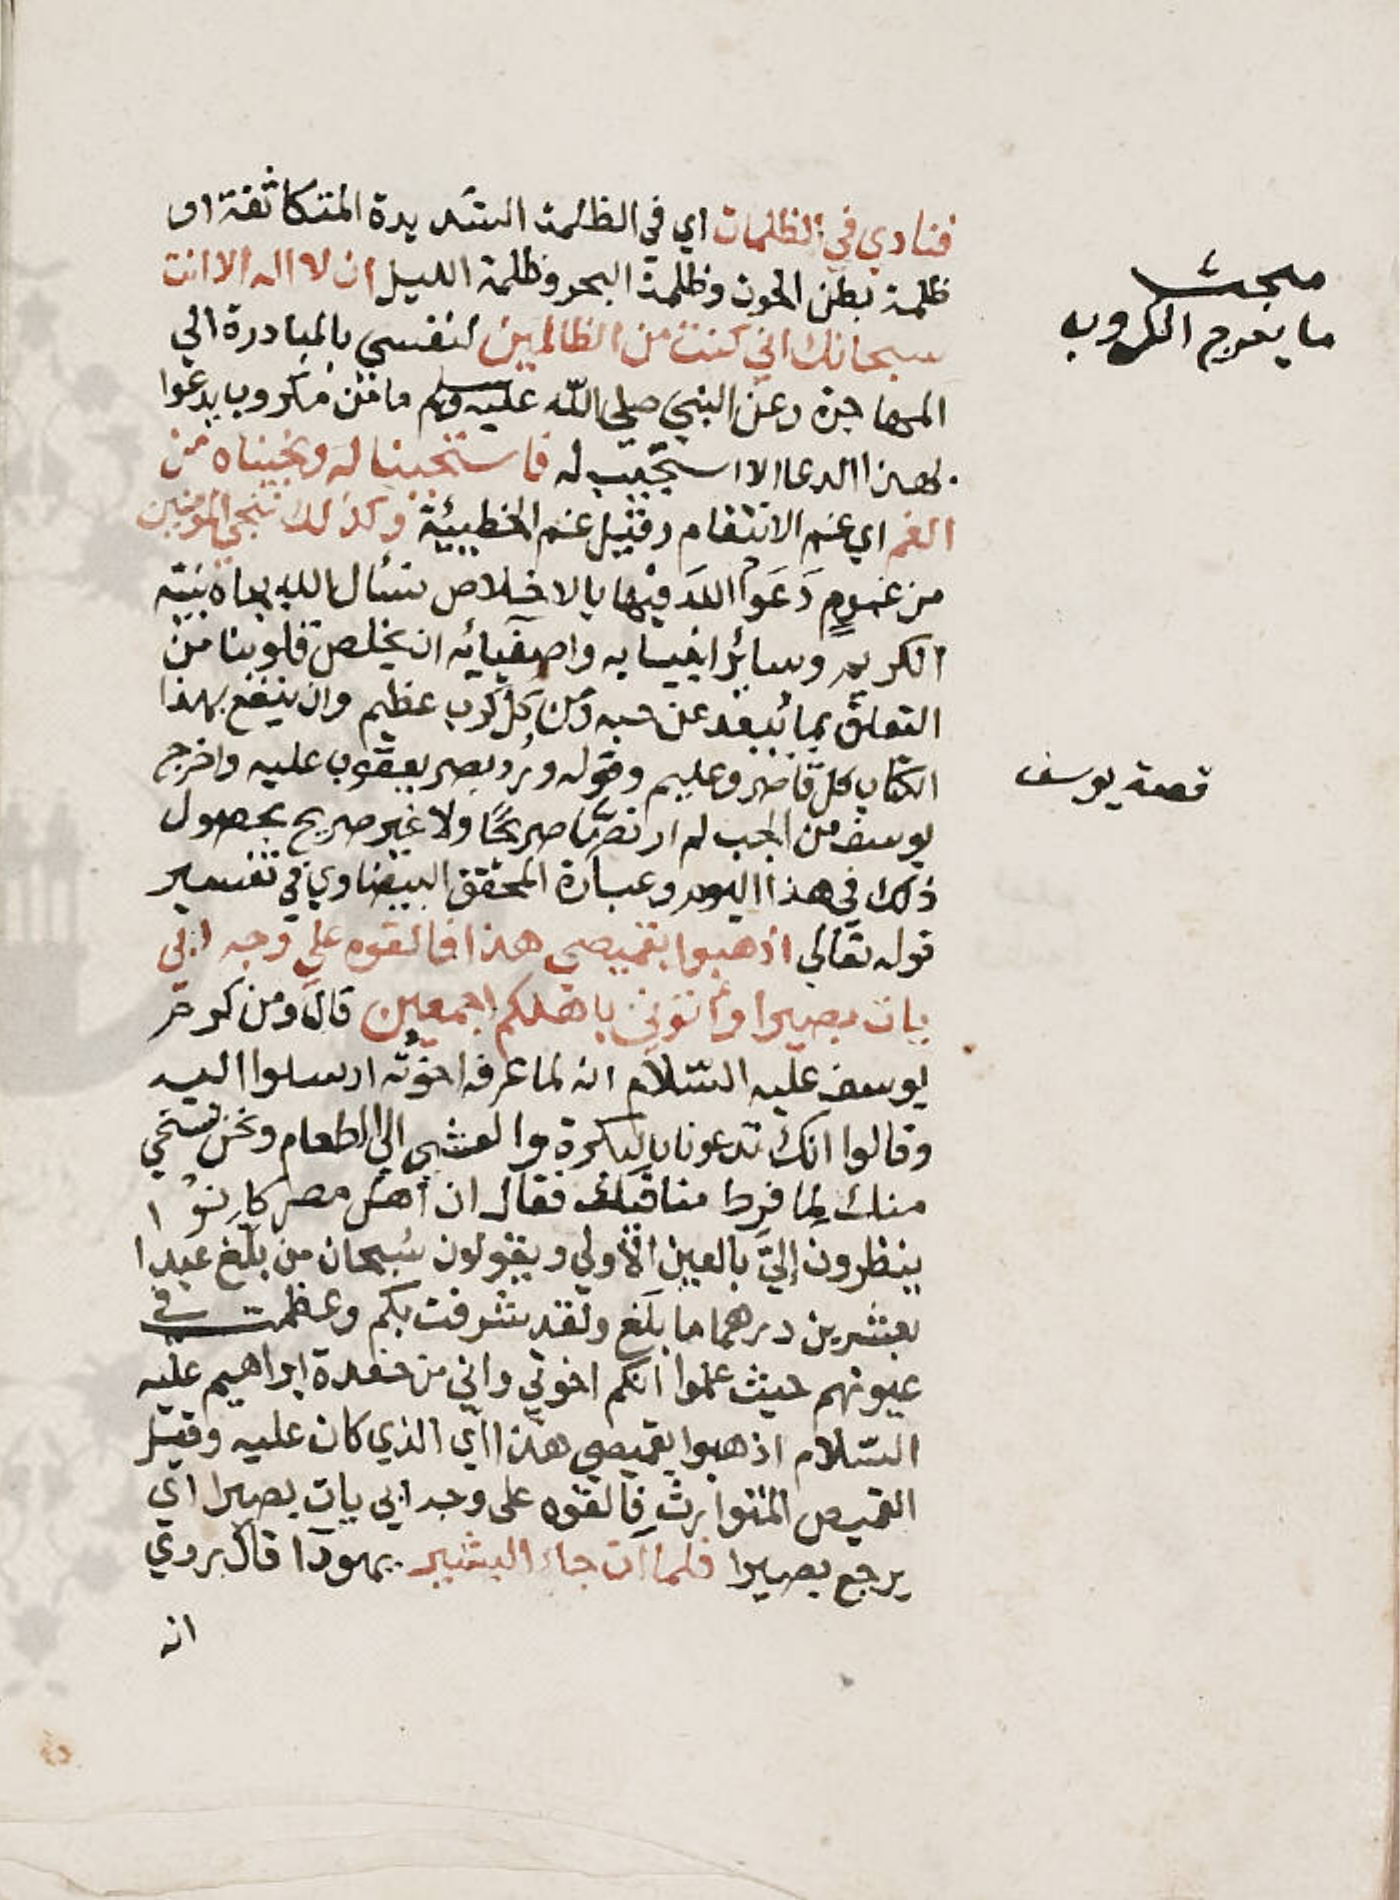 فنادي في الظلمات اي في الظلمة الشديدة المتكاثفة او
ظلمة بطن الحوت وظلمة البحر وظلمة الليل ان لا اله الا انت
سبحانك اني كنت من الظالمين لنفسي بالمبادرة الي
المهاجرة وعن النبي صلي الله عليه وسلم ما من مكروب يدعوا
بهذا الدعا الا استجيب له فاستجبنا له ونجيناه من
الغم اي غم الانتقام وقيل غم الخطيئة وكذلك ننجي المؤمنين
من غموم دَعَوا الله فيها بالاخلاص نسأل الله بجاه نبيه
الكريم وسائر انبيايه واصفيائه ان يخلص قلوبنا من
التعلق بما يبعد عن حبه ومن كل كرب عظيم وان ينفع بهذا
الكتاب كل قاصر وعليم وقوله ورُد بصر يعقوب عليه واخرج
يوسف من الجب لم ار نصًّا صريحًا ولا غير صريح بحصول
ذلك في هذا اليوم وعبارة المحقق البيضاوي في تفسير
قوله تعالي اذهبوا بقميصي هذا فالقوه علي وجه ابي
يات بصيرا وأتوني باهلكم اجمعين قال ومن كرم
يوسف عليه السّلام انه لما عرفه اخوته ارسلوا اليه
وقالوا انك تدعونا بالبكرة والعشي الي الطعام ونحن نستحي
منك لِما فرط منا فيك فقال ان أهل مصر كانوُا
ينظرون إليَّ بالعين الأولي ويقولون سُبحان من بلّغ عبدا
بعشرين درهما ما بلغ ولقد شرفت بكم وعظمت في
عيونهم حيث علموا انكم اخوتي واني من حفدة ابراهيم عليه
السّلام اذهبوا بقميصي هذا اي الذي كان عليه وقيل
القميص المتوارث فالقوه علي وجه ابي يات بصيرا اي
يرجع بصيرا فلما ان جاء البشير يهودا قال روي
انه
مبحث
ما يفرج الكروب
قصة يوسف